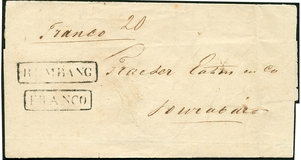 Franco 20
REMBANG
FRANCO
Fraeser Eaton en Co
Sourabaia